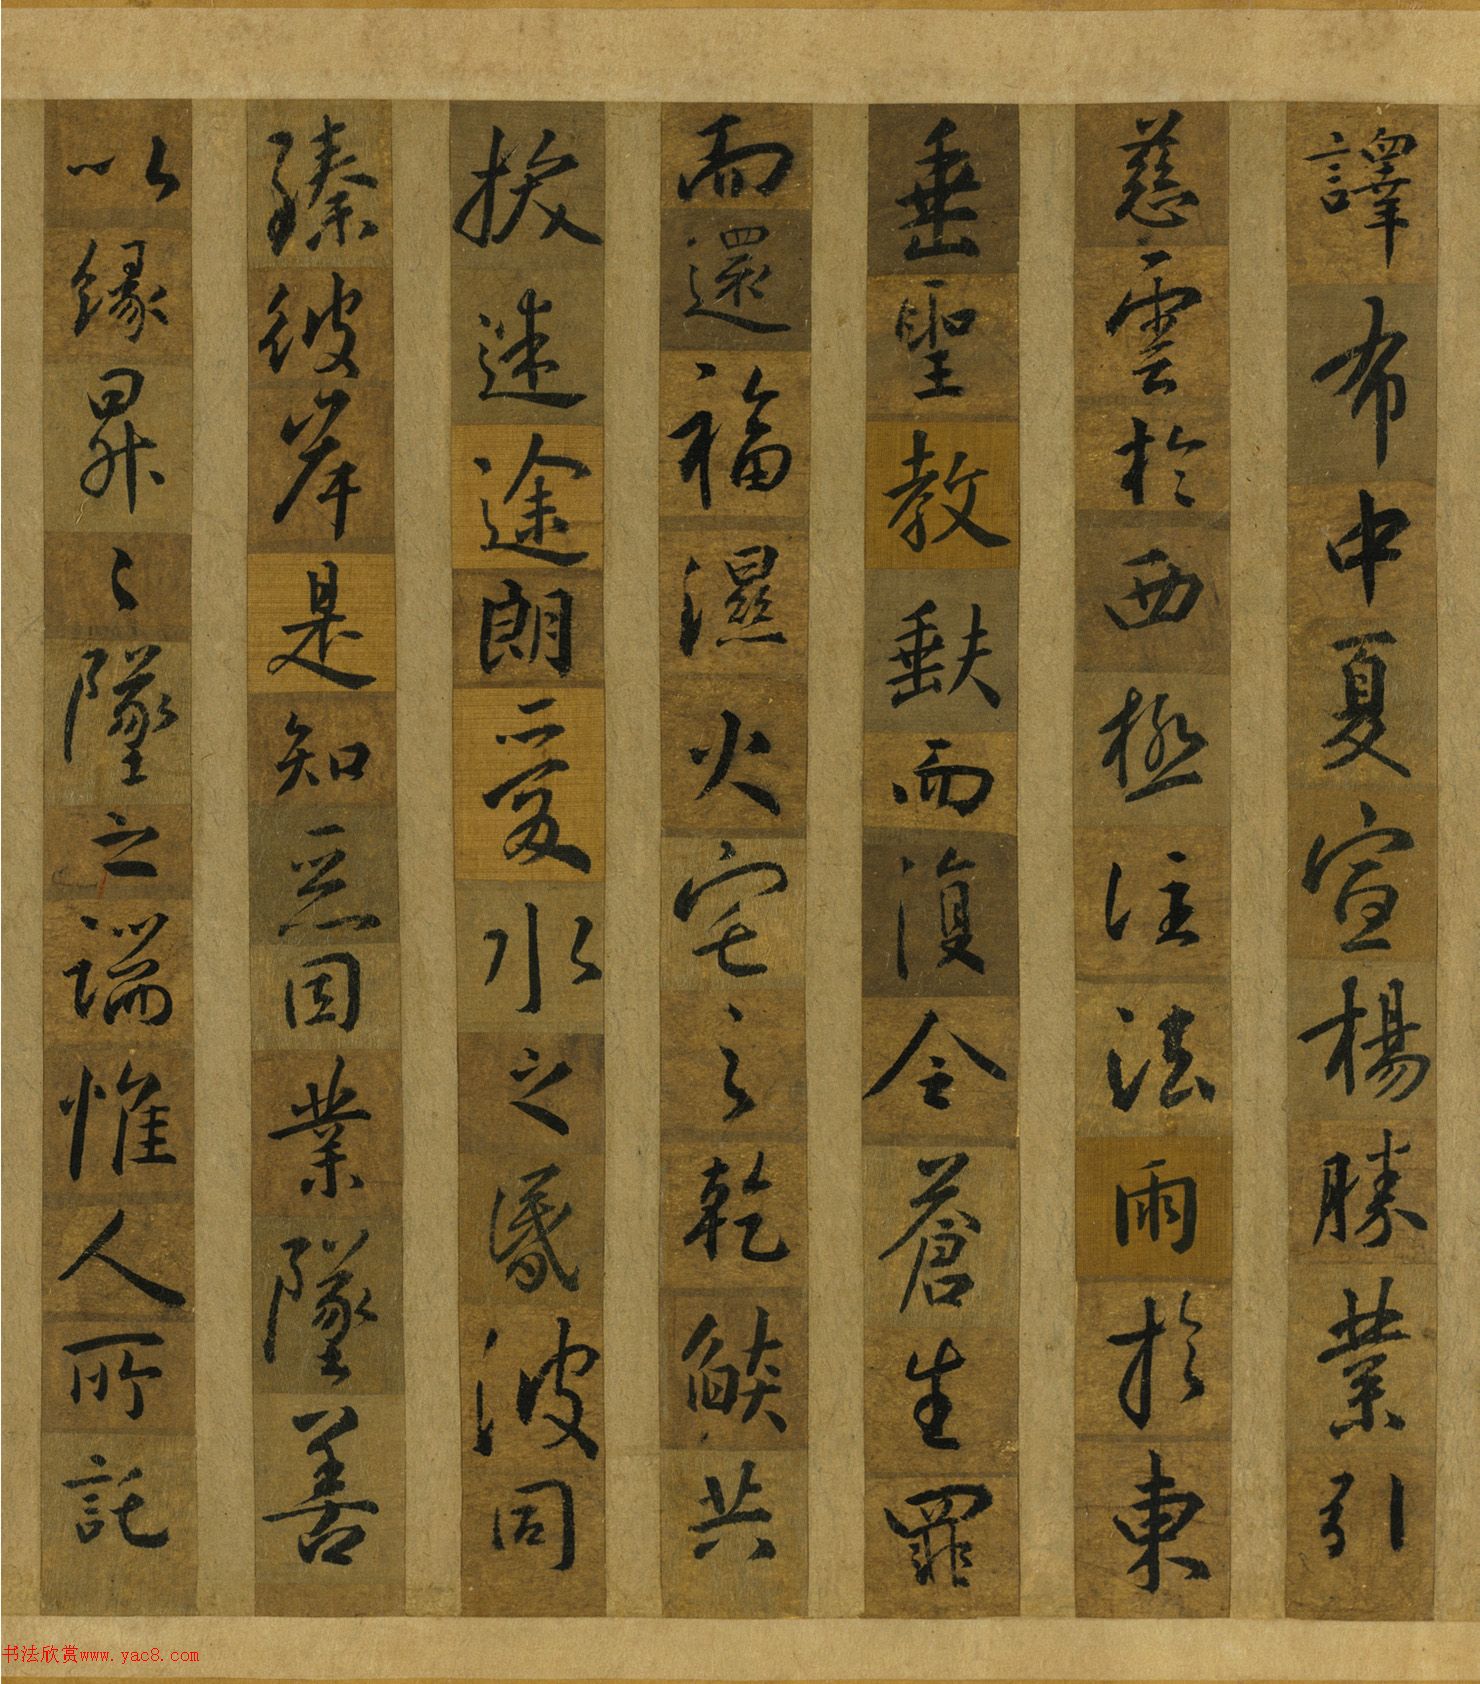 譯布中夏宣楊勝業引
慈雲於西極注法雨於東
垂聖教缺而復全蒼生罪
而還福濕火宅之乾燄共
拔迷途朗愛水之昏波同
臻彼岸是知惡因業墜善
以緣昇〻墜之端惟人所託
书法欣赏www.yac8.com